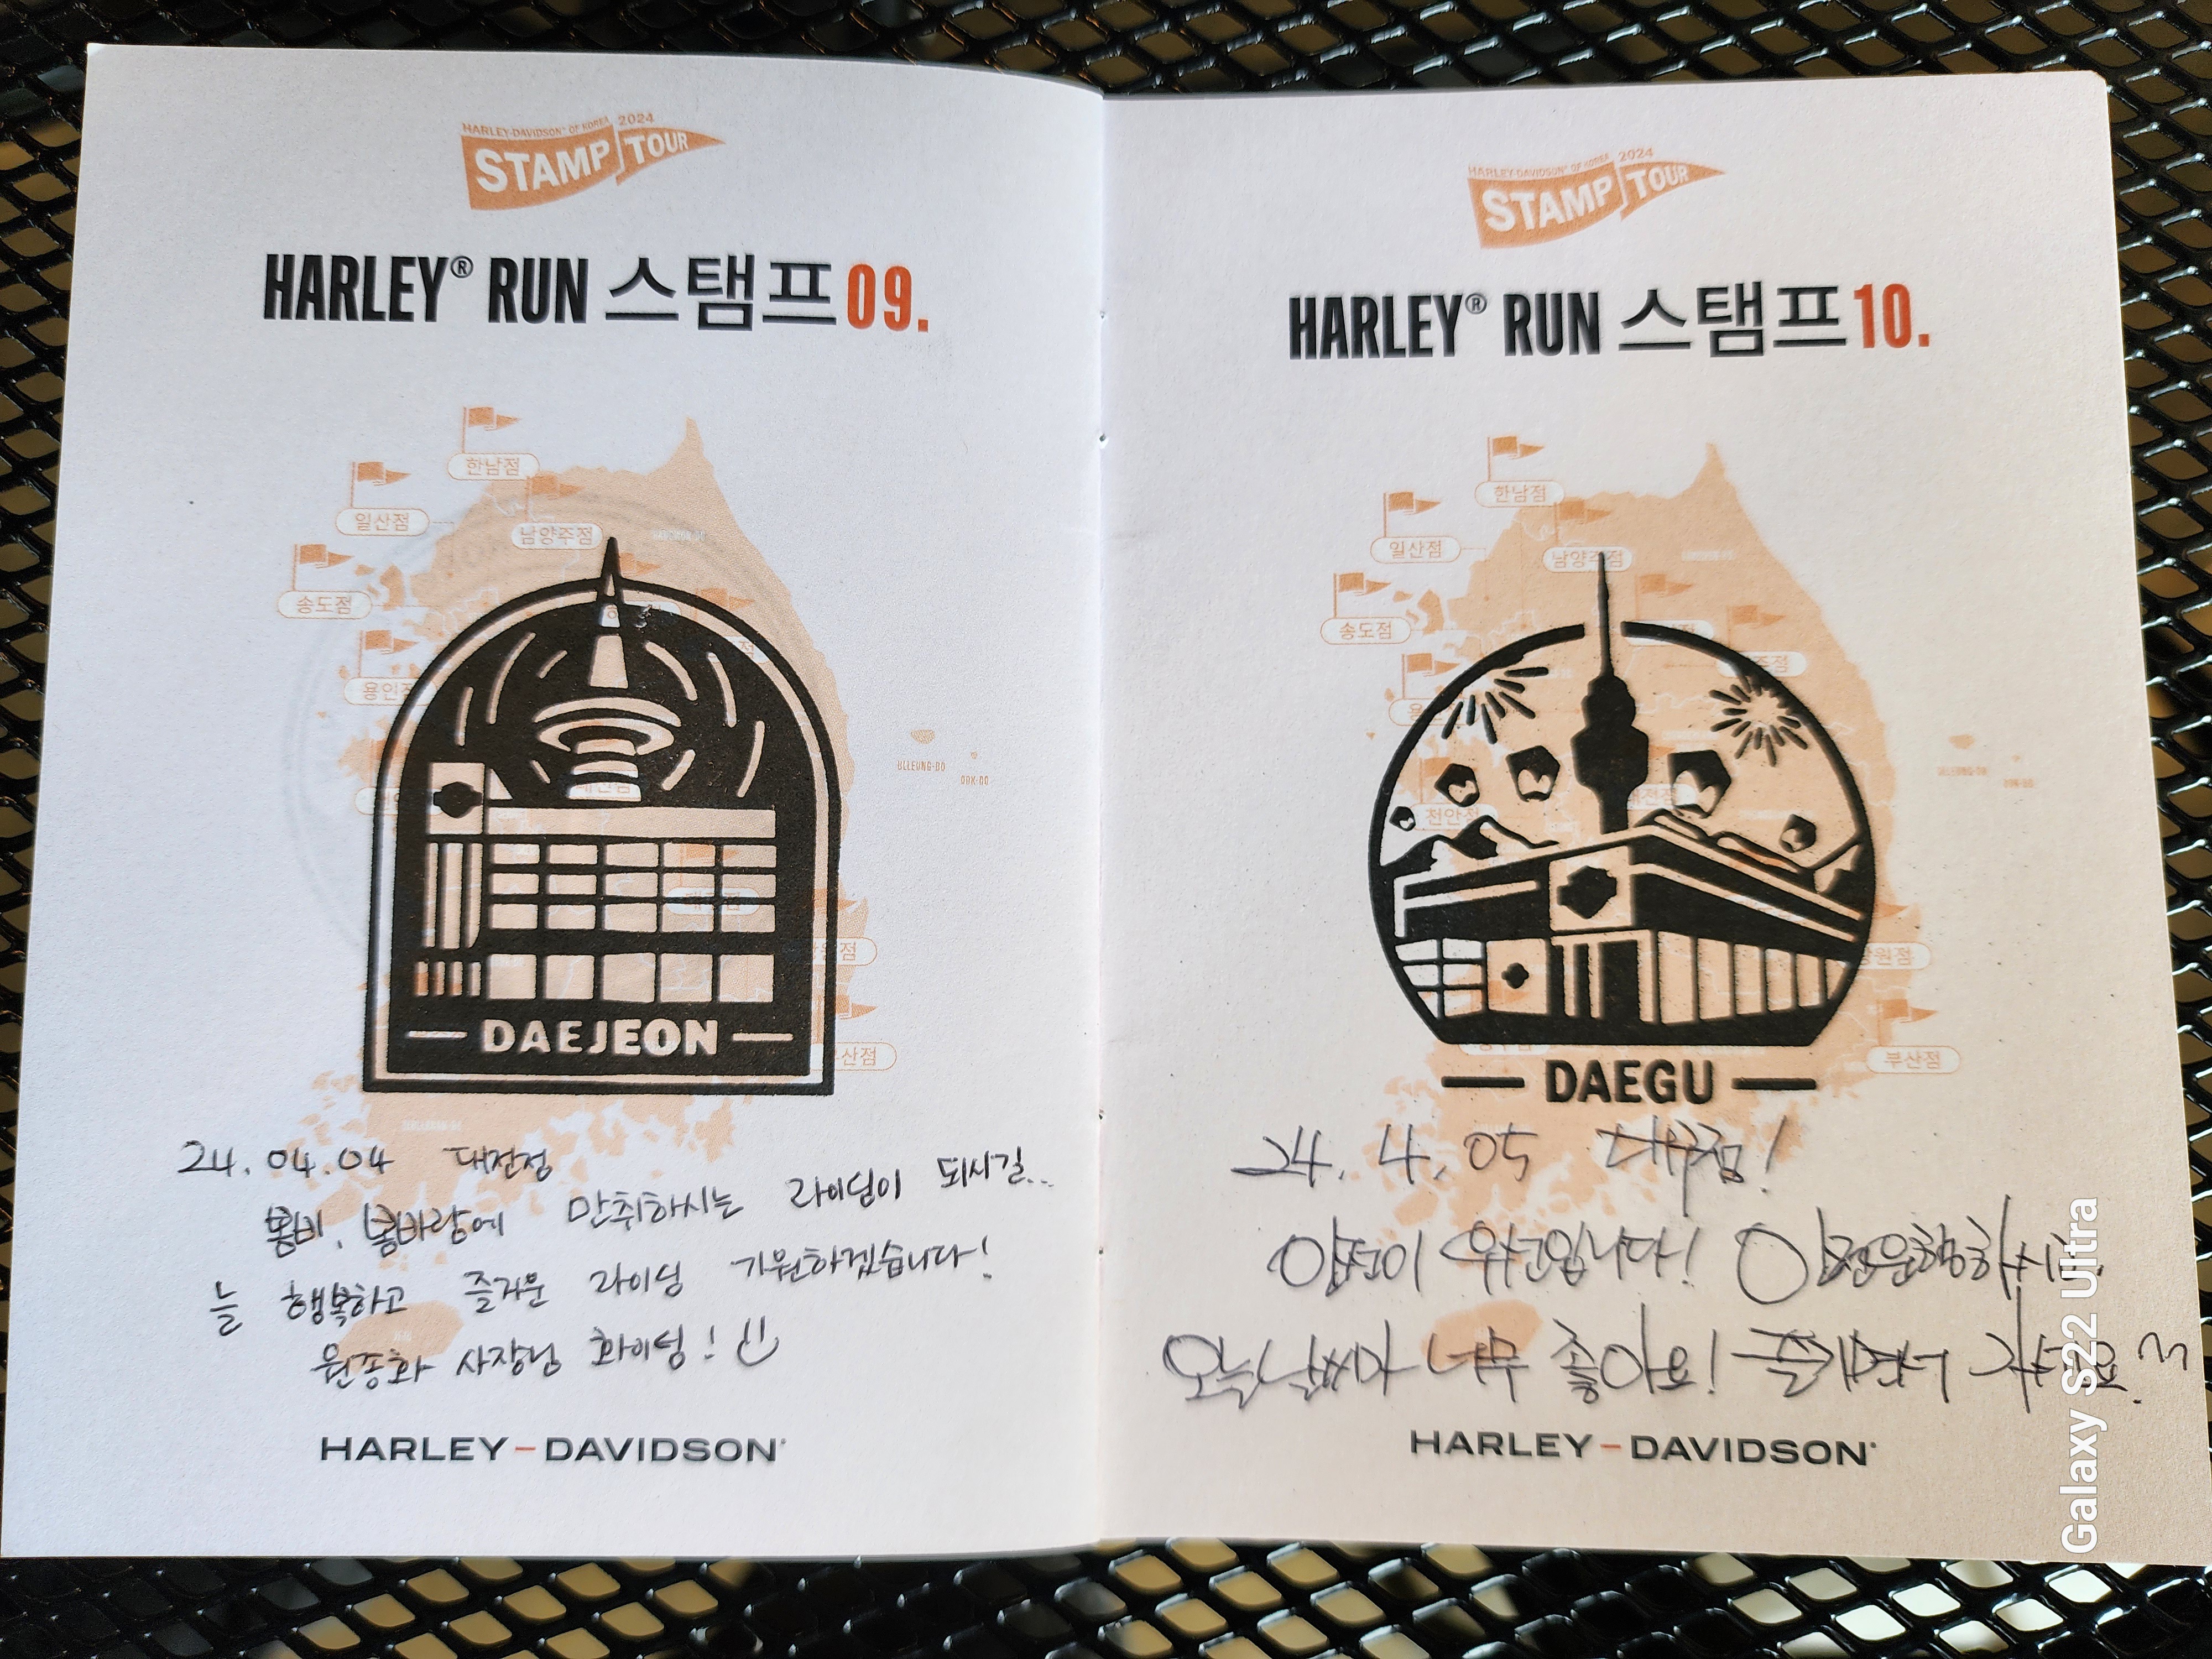 HARLEY-DAVIDSON® OF KOREA 2024
STAMP TOUR
HARLEY® RUN 스탬프 09.
한남점
일산점
남양주점
송도점
용인점
ULLEUNG-DO
DOK-DO
DAEJEON
24.04.04 대전점
봄비, 봄바람에 만취하시는 라이딩이 되시길..
늘 행복하고 즐거운 라이딩 기원하겠습니다!
원종화 사장님 화이팅!
HARLEY-DAVIDSON®
HARLEY-DAVIDSON® OF KOREA 2024
STAMP TOUR
HARLEY® RUN 스탬프 10.
한남점
일산점
남양주점
송도점
천안점
창원점
부산점
DAEGU
24. 4. 05 대구점!
안전이 우선입니다! 안전운행하시고
오늘 날씨가 너무 좋아요! 즐기면서 가세요
HARLEY-DAVIDSON®
Galaxy S22 Ultra